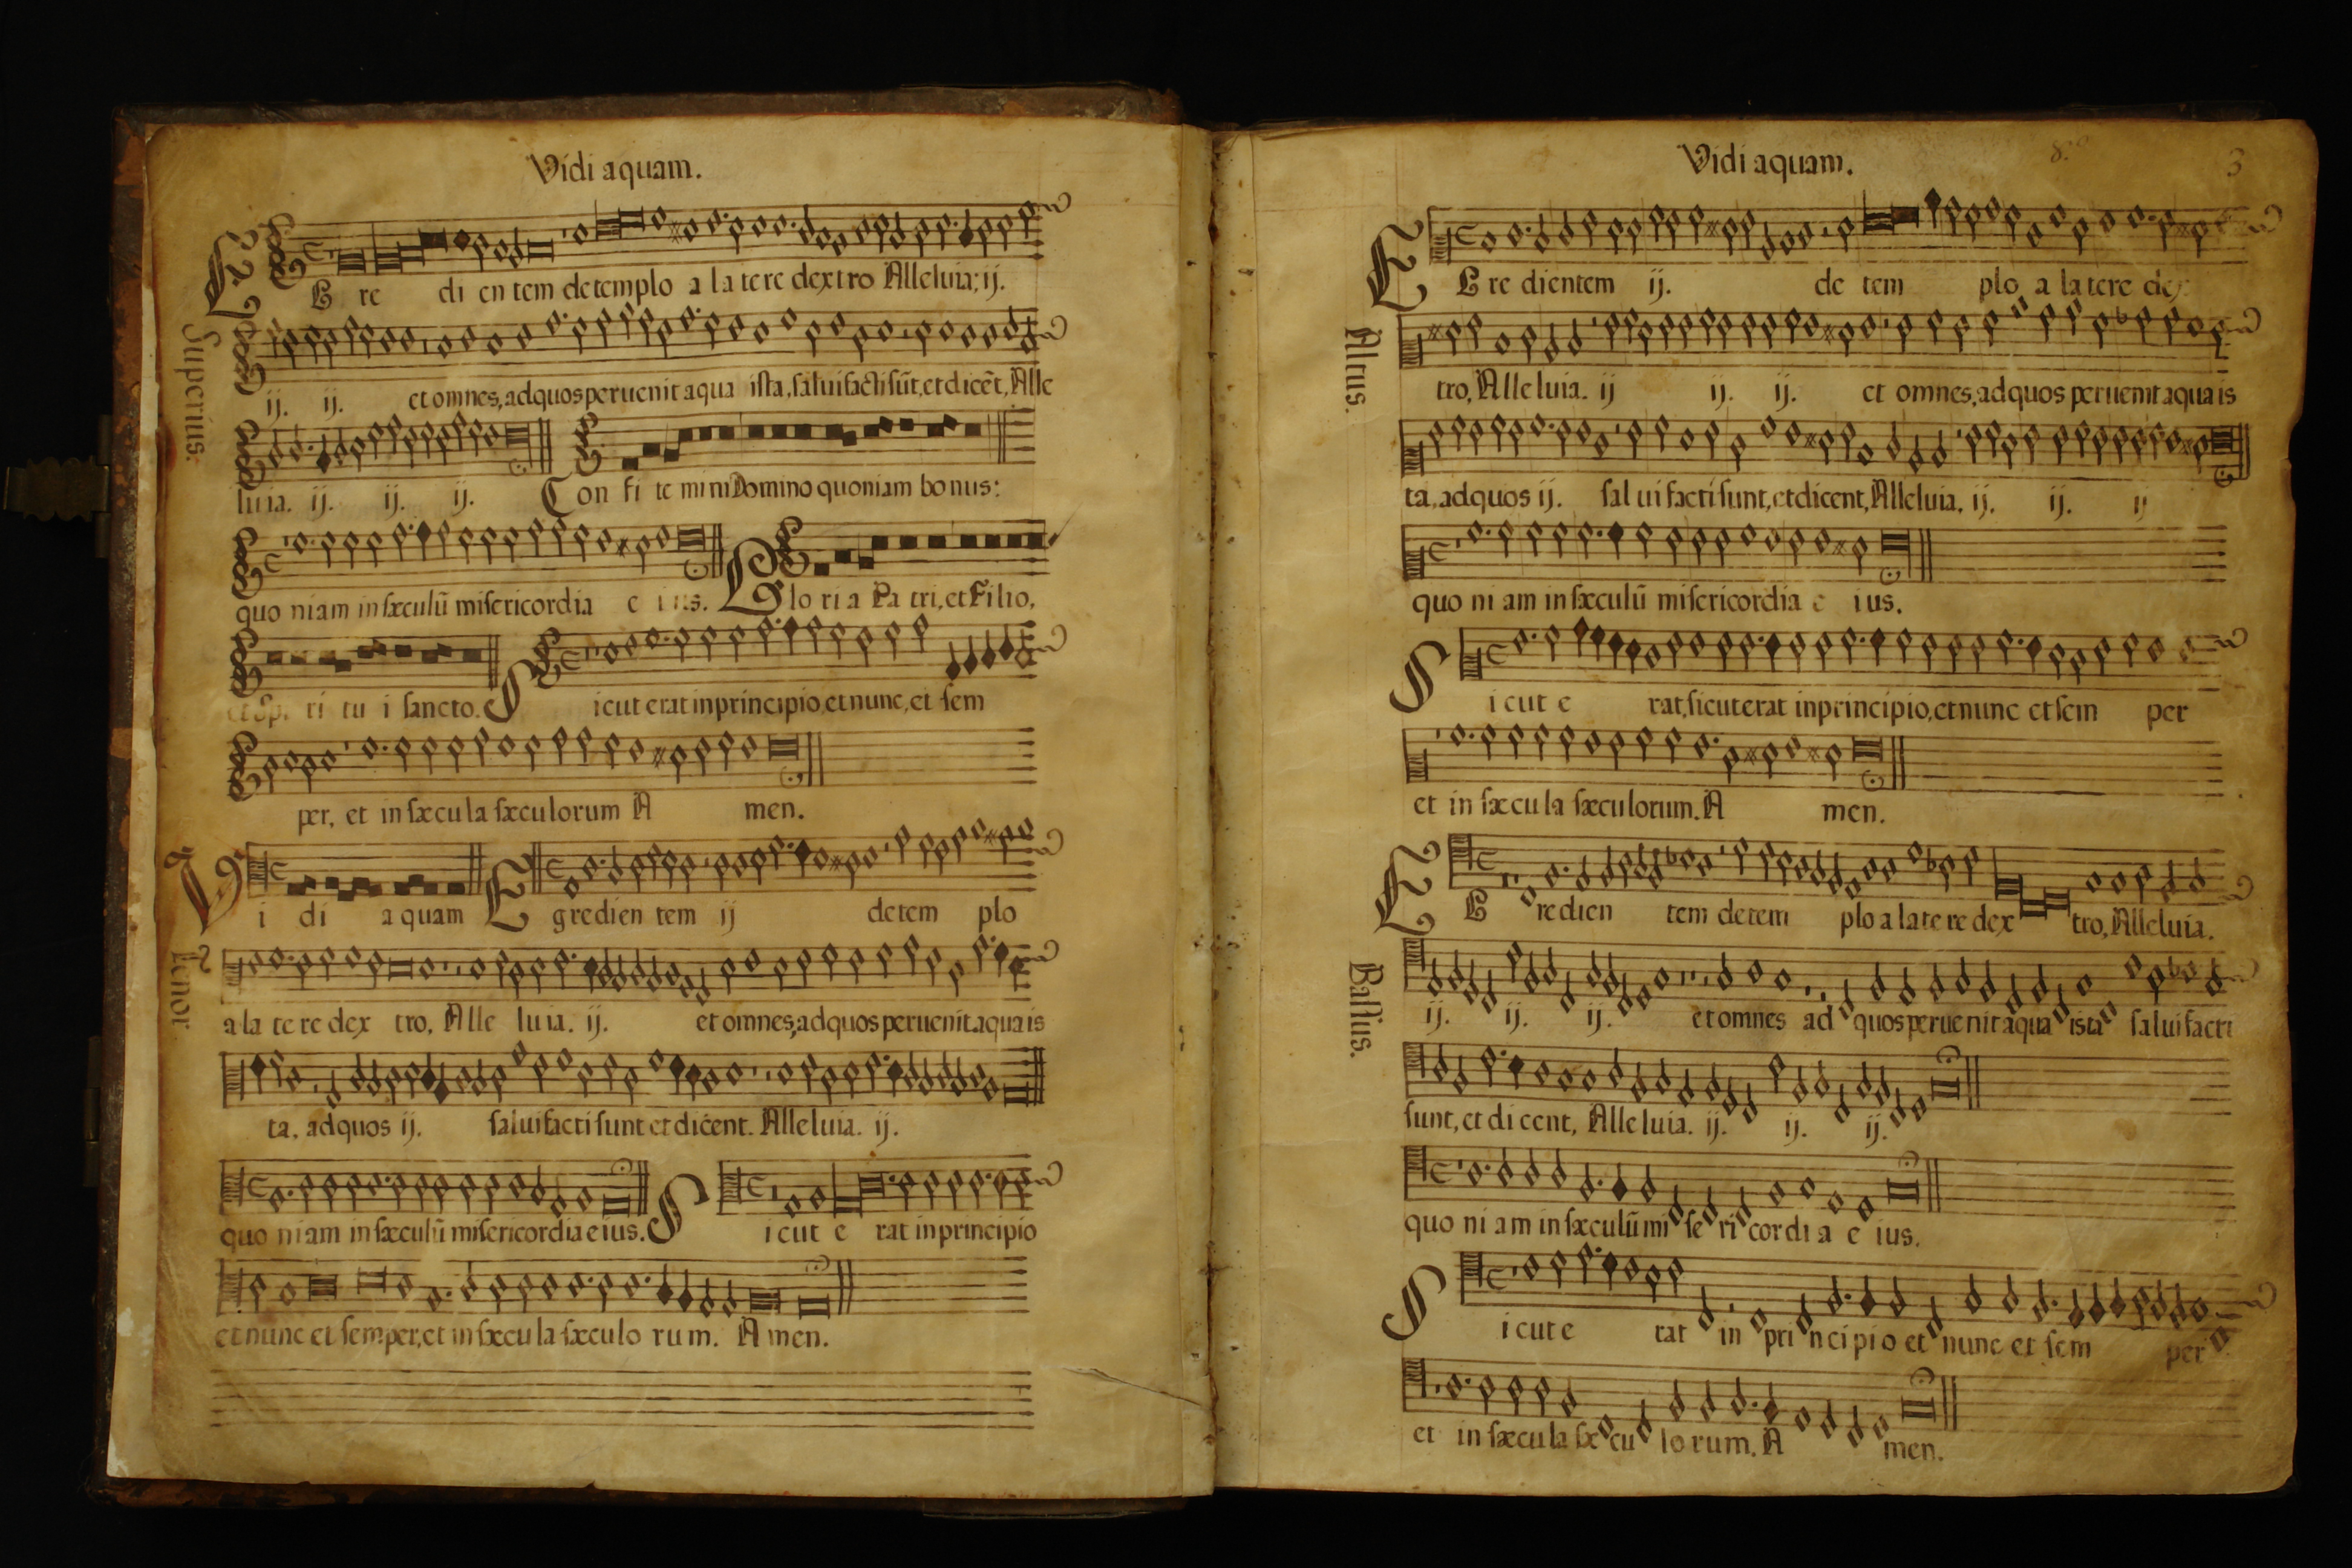 Vidi aquam.
Superius.
E G re di en tem de templo a latere dextro Alleluia; ij.
ij. ij. et omnes, ad quos peruenit aqua ista, salui facti sūt, et dicēt, Alle
luia. ij. ij. ij. Con fi te mini Domino quoniam bonus:
quo niam in sæculū misericordia e ius. Glo ri a Pa tri, et Filio,
et Sp. ri tu i sancto. S icut erat in principio, et nunc, et sem
per, et in sæcu la sæculorum A men.
Tenor
Vi di a quam E gredien tem ij de tem plo
a la te re dex tro, Alle luia. ij. et omnes, ad quos peruenit aqua is
ta, ad quos ij. salui facti sunt et dicent. Alleluia. ij.
quo niam in sæculū misericordia eius. S icut e rat in principio
et nunc et semper, et in sæcu la sæculo rum. A men.
Vidi aquam.
3
Altus.
E G re dientem ij. de tem plo a latere dex
tro, Alleluia. ij ij. ij. et omnes, ad quos peruenit aqua is
ta, ad quos ij. sal ui facti sunt, et dicent, Alleluia, ij. ij. ij
quo ni am in sæculū misericordia e ius.
S icut e rat, sicut erat in principio, et nunc et sem per
et in sæcu la sæculorum. A men.
Bassus.
E G redien tem de tem plo a latere dex tro, Alleluia.
ij. ij. ij. et omnes ad quos peruenit aqua ista salui facti
sunt, et dicent, Alleluia. ij. ij. ij.
quo ni am in sæculū mi se ri cordi a e ius.
S icut e rat in principio et nunc et sem per
et in sæcu la sæ cu lo rum. A men.